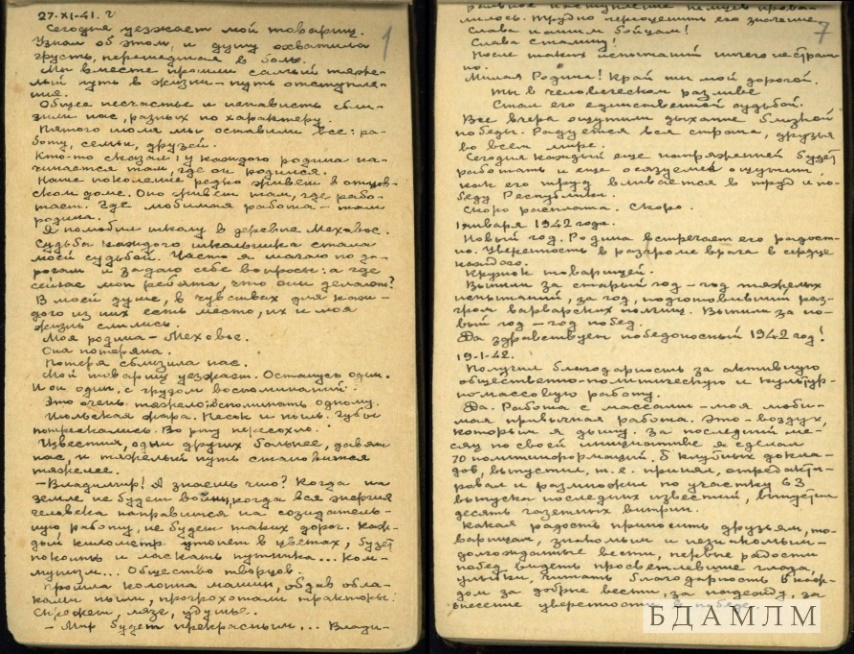 27-XI-41. г
1
Сегодня уезжает мой товарищ.
Узнал об этом, и душу охватила
грусть, перешедшая в боль.
Мы вместе прошли самый тяже-
лый путь в жизни – путь отступле-
ния.
Общее несчастье и ненависть сбли-
зили нас, разных по характеру.
Пятого июля мы оставили все: ра-
боту, семьи, друзей.
Кто-то сказал: у каждого родина на-
чинается там, где он родился.
Наше поколение редко живет в отцов-
ском доме. Оно живет там, где рабо-
тает. Где любимая работа – там
родина.
Я полюбил школу в деревне Меховое.
Судьба каждого школьника стала
моей судьбой. Часто я шагаю по до-
рогам и задаю себе вопросы: а где
сейчас мои ребята, что они делают?
В моей душе, в чувствах для каж-
дого из них есть место, их и моя
жизнь слились.
Моя родина – Меховое.
Она потеряна.
Потеря сблизила нас.
Мой товарищ уезжает. Останусь один.
И он один, с грузом воспоминаний.
Это очень тяжело вспоминать одному.
Июльская жара. Песок и пыль. Губы
потрескались. Во рту пересохло.
Известия, одни других больнее, давят
нас, и тяжелый путь становится
тяжелее.
– Владимир! А знаешь что? Когда на
земле не будет войны, когда вся энергия
человека направится на созидатель-
ную работу, не будет таких дорог. Каж-
дый километр утонет в цветах, будет
покоить и ласкать путника... Ком-
мунизм... Общество творцов.
Прошла колонна машин, обдав обла-
ками пыли, прогрохотали тракторы.
Скрежет, лязг, удушье.
– Мир будет прекрасным... Влади-
7
ральное наступление немцев прова-
лилось. Трудно переоценить его значение.
Слава нашим бойцам!
Слава Сталину!
После таких испытаний ничего не страш-
но.
Милая Родина! Край ты мой дорогой.
Ты в человеческом разливе
Стал его единственной судьбой.
Все вчера ощутили дыхание близкой
победы. Радуется вся страна, друзья
во всем мире.
Сегодня каждый еще напряженней будет
работать и еще осязуемей ощутит,
как его труд вливается в труд и по-
беду Республики.
Скоро расплата. Скоро.
1 января 1942 года.
Новый год. Родина встречает его радост-
но. Уверенность в разгроме врага в сердце
каждого.
Кружок товарищей.
Выпили за старый год – год тяжелых
испытаний, за год, подготовивший раз-
гром варварских полчищ. Выпили за но-
вый год – год побед.
Да здравствует победоносный 1942 год!
19-1-42.
Получил благодарность за активную
общественно-политическую и культур-
но-массовую работу.
Да. Работа с массами – моя люби-
мая привычная работа. Это – воздух,
которым я дышу. За последний ме-
сяц по своей инициативе я сделал
70 политинформаций, 5 клубных докла-
дов, выпустил, т. е. принял, отредакти-
ровал и размножил по участку 63
выпуска последних известий, выпустил
десять газетных витрин.
Какая радость приносить друзьям, то-
варищам, знакомым и незнакомым –
долгожданные вести, первые радости
побед видеть просветлевшие глаза,
улыбки, читать благодарность в каж-
дом за добрые вести, за надежду, за
внесение уверенности в победе.
БДАМЛМ